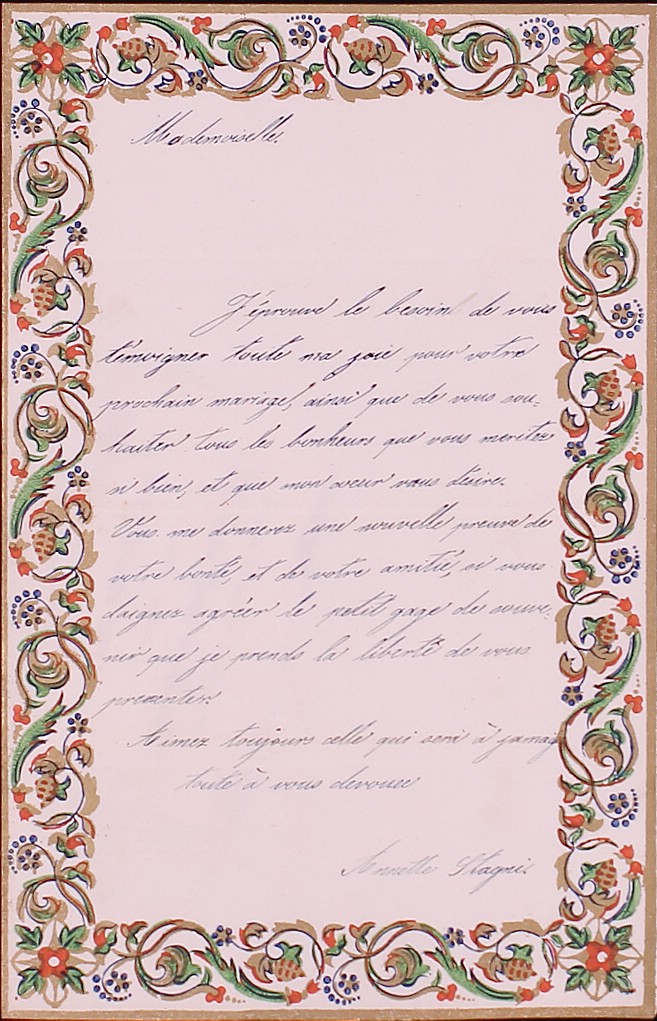 Mademoiselle.
J'éprouve le besoin de vous
témoigner toute ma joie pour votre
prochain mariage, ainsi que de vous sou-
haiter tous les bonheurs que vous meritez
si bien, et que mon coeur vous désire.
Vous me donnerez une nouvelle preuve de
votre bonté, et de votre amitié, si vous
daignez agréer le petit gage de souve-
nir que je prends la liberté de vous
presenter.
Aimez toujours celle qui sera à jamais
toute à vous devouee
Annette